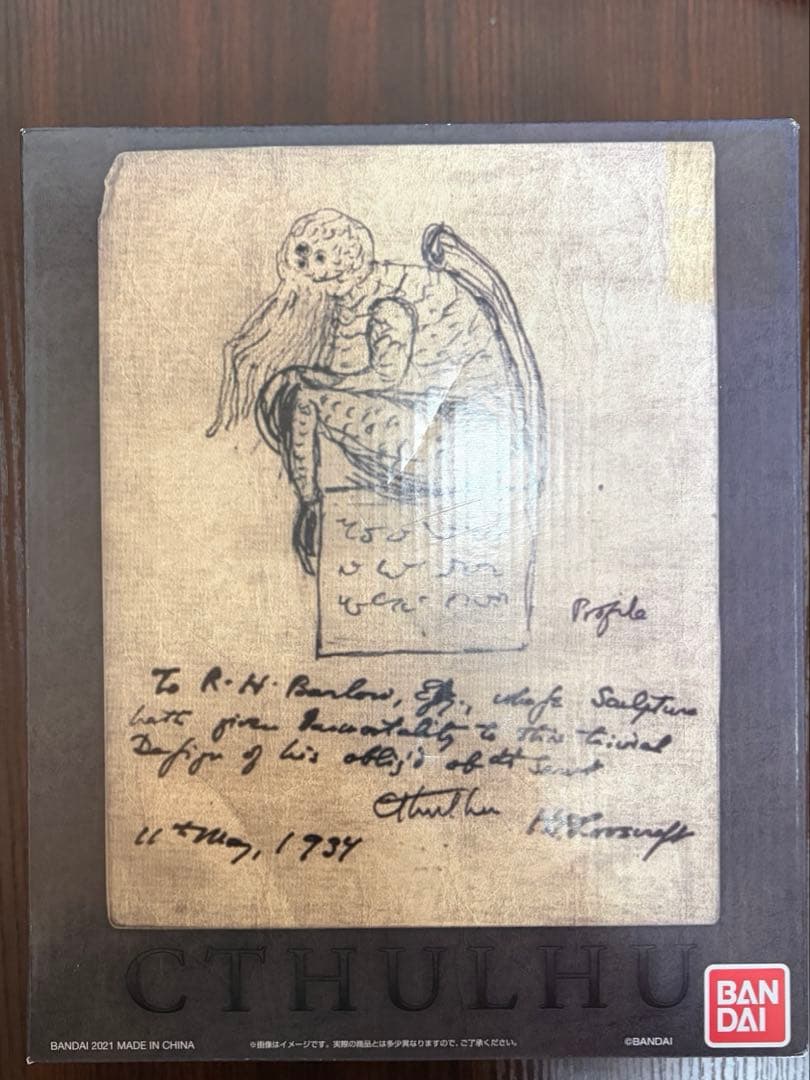 Profile
To R. H. Barlow, Esq., whose Sculpture
hath given Immortality to this trivial
Design of his oblig'd obdt Servt
Cthulhu
H. P. Lovecraft
11th May, 1934
CTHULHU
BAN
DAI
BANDAI 2021 MADE IN CHINA
※画像はイメージです。実際の商品とは多少異なりますので、ご了承ください。
©BANDAI